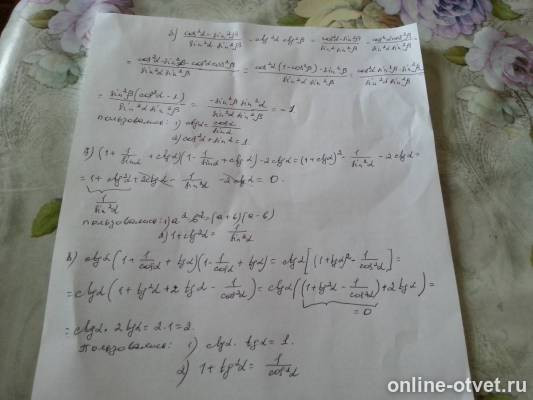 б) (cos²α - sin²β)/(sin²α sin²β) - ctg²α ctg²β = (cos²α - sin²β)/(sin²α sin²β) - (cos²α cos²β)/(sin²α sin²β) =
= (cos²α - sin²β - cos²α cos²β)/(sin²α sin²β) = (cos²α (1 - cos²β) - sin²β)/(sin²α sin²β) = (cos²α sin²β - sin²β)/(sin²α sin²β) =
= sin²β (cos²α - 1)/(sin²α sin²β) = - sin²β sin²α/(sin²α sin²β) = -1
пользовались: 1) ctgα = cosα/sinα
2) cos²α + sin²α = 1
(1 + 1/sinα + ctgα)(1 - 1/sinα + ctgα) - 2ctgα = (1 + ctgα)² - 1/sin²α - 2ctgα =
= 1 + ctg²α + 2ctgα - 1/sin²α - 2ctgα = 0.
1/sin²α
пользовались: 1) a² - b² = (a + b)(a - b)
2) 1 + ctg²α = 1/sin²α
ctgα (1 + 1/cosα + tgα)(1 - 1/cosα + tgα) = ctgα [(1 + tgα)² - 1/cos²α] =
= ctgα (1 + tg²α + 2tgα - 1/cos²α) = ctgα ((1 + tg²α - 1/cos²α) + 2tgα) =
= 0
= ctgα · 2tgα = 2·1 = 2.
Пользовались: 1) ctgα · tgα = 1.
2) 1 + tg²α = 1/cos²α
online-otvet.ru